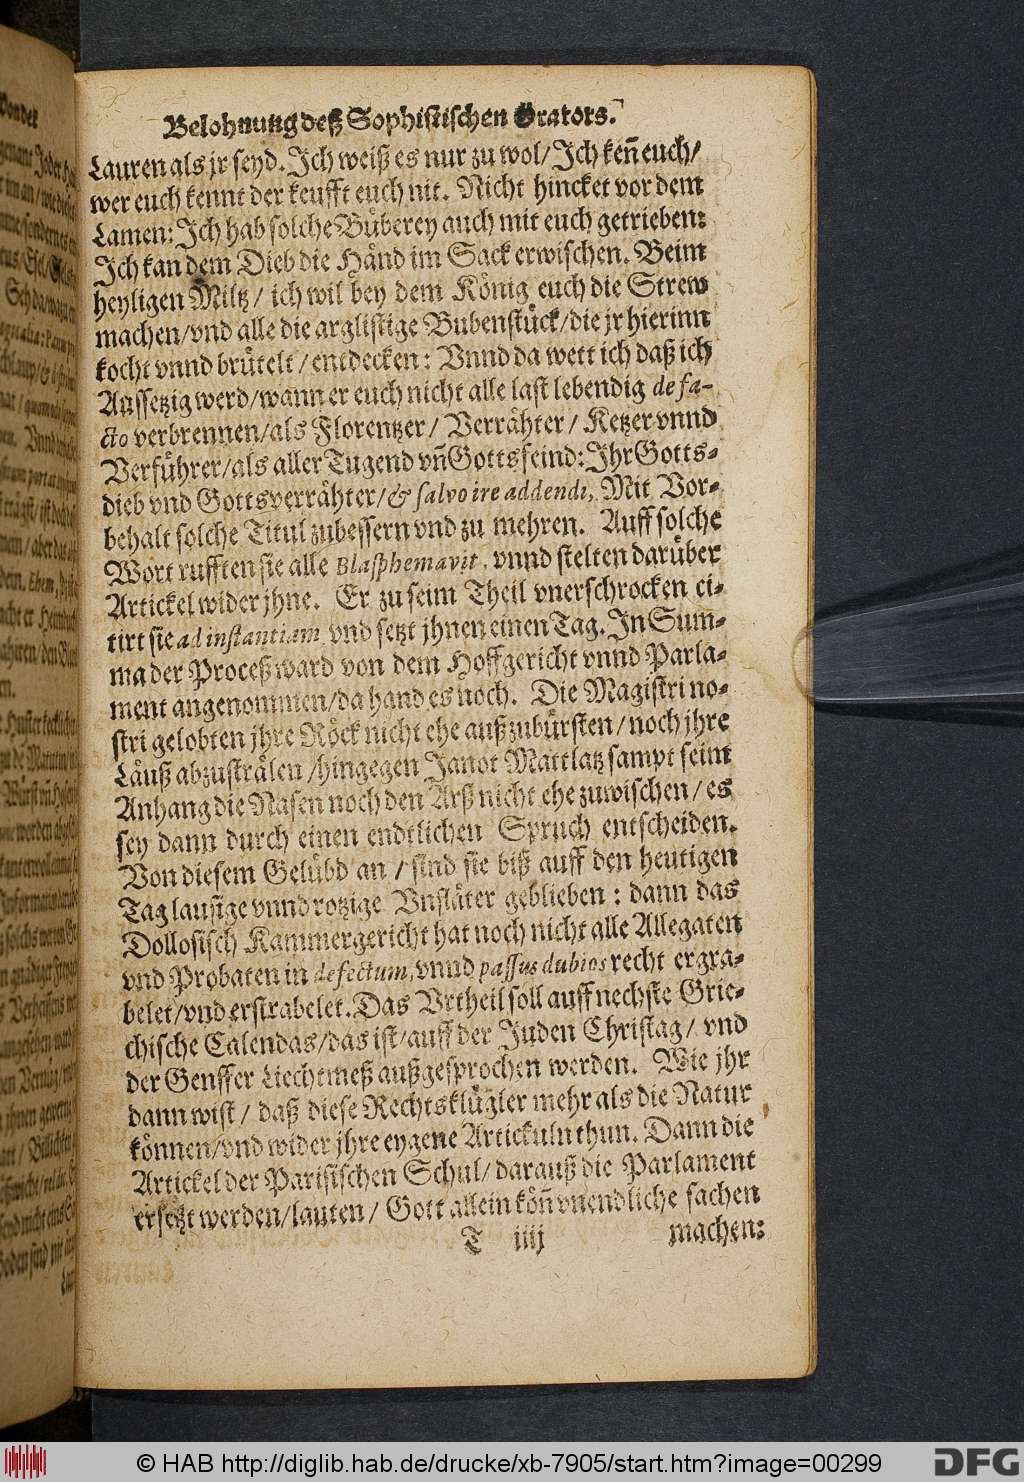 Belohnung deß Sophistischen Orators.
Lauren als jr seyd. Ich weiß es nur zu wol/ Ich keñ euch/
wer euch kennt der keufft euch nit. Nicht hincket vor dem
Lamen: Ich hab solche Büberey auch mit euch getrieben:
Ich kan dem Dieb die Händ im Sack erwischen. Beim
heyligen Miltz/ ich wil bey dem König euch die Strew
machen/vnd alle die arglistige Bubenstück/die jr hierinn
kocht vnnd brütelt/entdecken: Vnnd da wett ich daß ich
Aussetzig werd/wann er euch nicht alle last lebendig de fa-
cto verbrennen/als Florentzer/ Verrähter/ Ketzer vnnd
Verführer/als aller Tugend vñ Gotts feind: Ihr Gotts-
dieb vnd Gottsverrähter/& salvo ire addendi, Mit Vor-
behalt solche Titul zubessern vnd zu mehren. Auff solche
Wort rufften sie alle Blasphemavit, vnnd stelten darüber
Artickel wider jhne. Er zu seim Theil vnerschrocken ci-
tirt sie ad instantiam vnd setzt jhnen einen Tag. In Sum-
ma der Proceß ward von dem Hoffgericht vnnd Parla-
ment angenommen/da hand es noch. Die Magistri no-
stri gelobten jhre Röck nicht ehe außzubürsten/noch jhre
Läuß abzusträlen/hingegen Janot Mattlatz sampt seim
Anhang die Nasen noch den Arß nicht ehe zuwischen/ es
sey dann durch einen endtlichen Spruch entscheiden.
Von diesem Gelübd an/ sind sie biß auff den heutigen
Tag lausige vnnd rotzige Vnfläter geblieben: dann das
Dollosisch Kammergericht hat noch nicht alle Allegaten
vnd Probaten in defectum, vnnd passus dubios recht ergra-
belet/vnd erstrabelet. Das Vrtheil soll auff nechste Grie-
chische Calendas/das ist/auff der Juden Christag/ vnd
der Gensser Liechtmeß außgesprochen werden. Wie jhr
dann wist/ daß diese Rechtsklügler mehr als die Natur
können/vnd wider jhre eygene Artickuln thun. Dann die
Artickel der Parisischen Schul/darauß die Parlament
ersetzt werden/lauten/ Gott allein köñ vnendliche sachen
T iiij machen:
© HAB http://diglib.hab.de/drucke/xb-7905/start.htm?image=00299
DFG